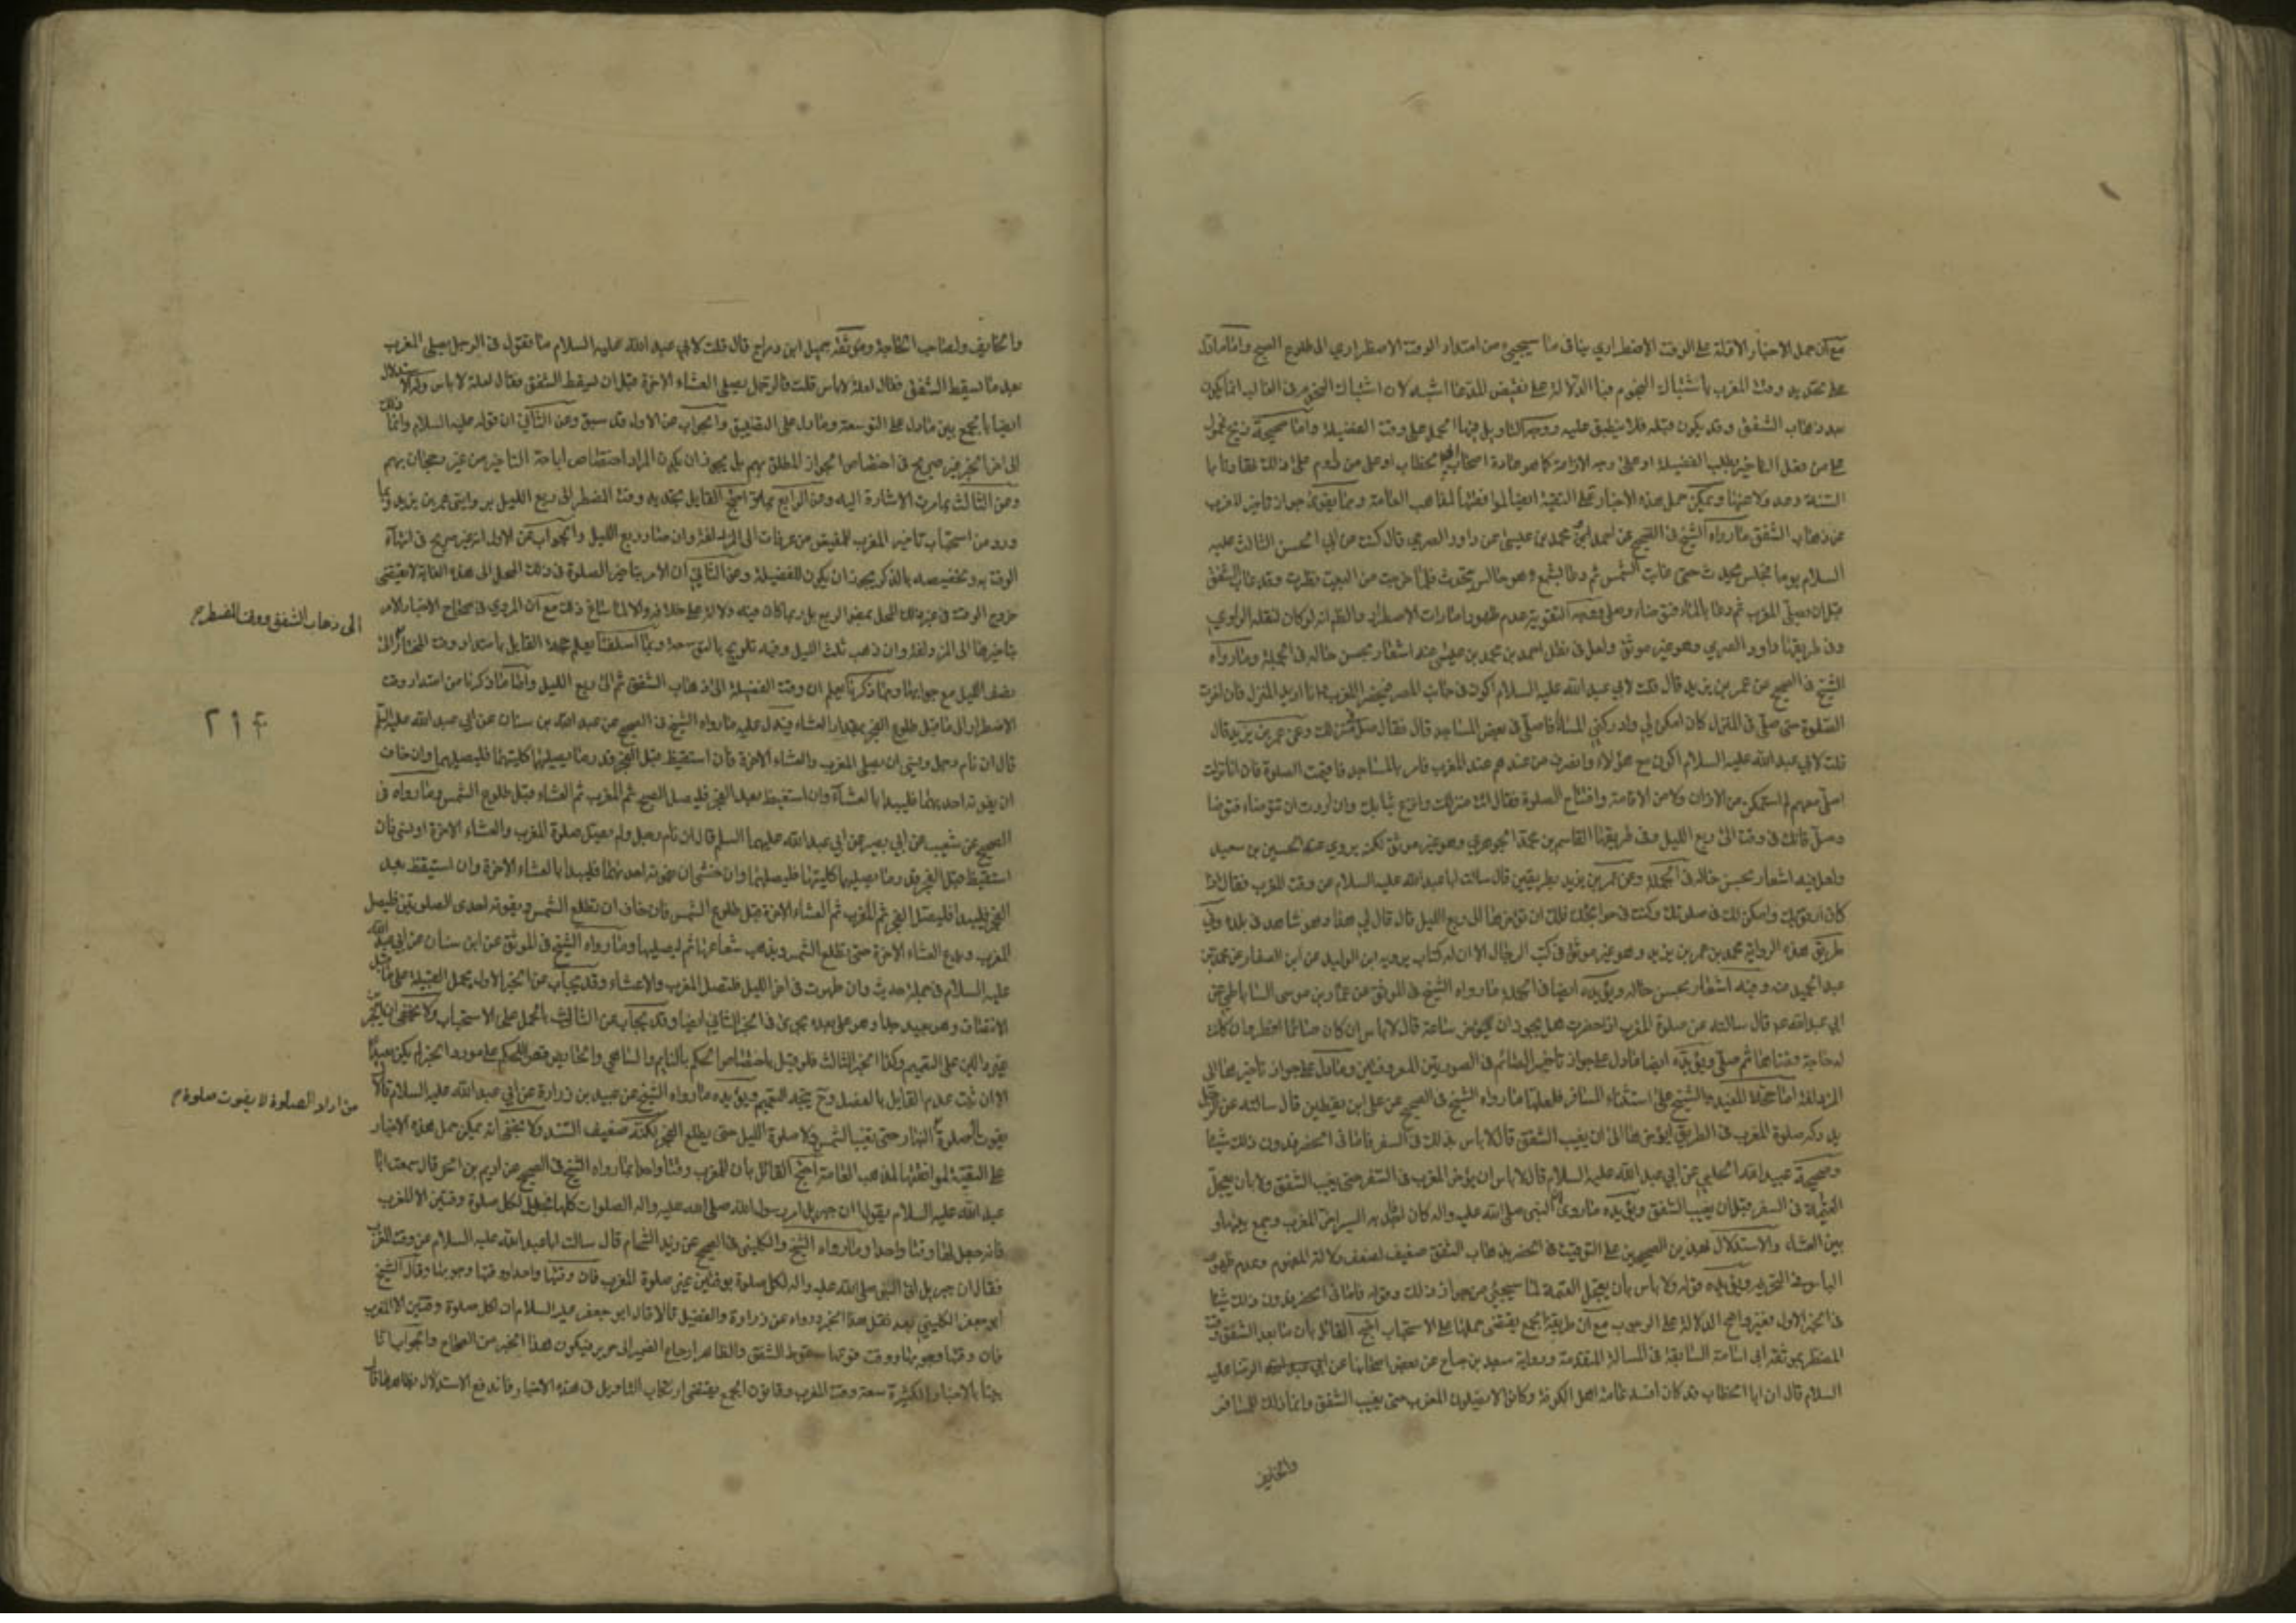 مع ان حمل الاخبار الاولة على الوقت الاضطراري ينافى ما سيجيئ من امتداد الوقت الاضطراري الى طلوع الصبح واما ما دل
على تحديد وقت المغرب باشتباك النجوم فبا الدلالة على نقيض المدعا اشبه لان اشتباك النجوم فى الغالب انما يكون
بعد ذهاب الشفق وقد يكون قبله فلا ينطبق عليه ووجه التاويل فيها الحمل على وقت الفضيلة واما صحيحة ذريح فمحمول
على من فعل التاخير لطلب الفضيلة او على وجه الازمة كما هو عادة اصحاب ابى الخطاب او على من داوم على ذلك تهاونا بالسنة
ويمكن حمل هذه الاخبار على التقية ايضا لموافقتها لمذاهب العامة ومما يقوى جواز تاخير المغرب
عن ذهاب الشفق ما رواه الشيخ فى الصحيح عن احمد بن محمد بن عيسى عن داود الصرمي قال كنت عن ابي الحسن الثالث عليه
السلام يوما فجلس يحدث حتى غابت الشمس ثم دعا بالشمع وهو جالس يتحدث فلما خرجت من البيت نظرت وقد غاب الشفق
قبل ان يصلى المغرب ثم دعا بالماء فتوضاء وصلى ووجه التقوية عدم ظهور امارات الاضطرار والظ انه لو كان لنقله الراوي
وفى طريقها داود الصرمي وهو غير موثق ولعل فى نقل احمد بن محمد بن عيسى عنه اشعار بحسن حاله فى الجملة وما رواه
الشيخ فى الصحيح عن عمر بن يزيد قال قلت لابي عبد الله عليه السلام اكون فى جانب المصر فيحضر المغرب وانا اريد المنزل فان اخرت
الصلوة حتى صلى فى المنزل كان امكن لي وادركني المساء فاصلى فى بعض المساجد قال فقال صل فى منزلك وعن عمر بن يزيد قال
قلت لابي عبد الله عليه السلام اكون مع هؤلاء وانصرف من عندهم عند المغرب فامر بالمساجد فاقيمت الصلوة فان انا نزلت
اصلى معهم لم استمكن من الاذان ولا من الاقامة وافتتاح الصلوة فقال ائت منزلك وانزع ثيابك وان اردت ان تتوضاء فتوضا
وصل فانك فى وقت الى ربع الليل وفى طريقها القاسم بن محمد الجوهري وهو غير موثق لكن يروي عنه الحسين بن سعيد
ولعل فيه اشعار بحسن حاله فى الجملة وعن عمر بن يزيد بطريقين قال سالت ابا عبد الله عليه السلام عن وقت المغرب فقال اذا
كان ارفق بك وامكن لك فى صلوتك وكنت فى حوائجك فلك ان تؤخرها الى ربع الليل قال قال لي هذا وهو شاهد فى بلده وفي
طريق هذه الرواية محمد بن عمر بن يزيد وهو غير موثق فى كتب الرجال الا ان له كتاب يرويه ابن الوليد عن ابن الصفار عن محمد بن
عبد الحميد عنه وفيه اشعار بحسن حاله ويؤيده ايضا فى الجملة ما رواه الشيخ فى الموثق عن عمار بن موسى الساباطي عن
ابي عبد الله ع قال سالته عن صلوة المغرب اذا حضرت هل يجوز ان تؤخر ساعة قال لا باس ان كان صائما افطر وان كانت
له حاجة قضاها ثم صلى ويؤيده ايضا ما دل على جواز تاخير الصائم فى الصورتين المعروفتين وما دل على جواز تاخيرها الى
المزدلفة اما حجة المفيد والشيخ على استثناء المسافر فلعلها ما رواه الشيخ فى الصحيح عن على بن يقطين قال سالته عن الرجل
يدركه صلوة المغرب فى الطريق ايؤخرها الى ان يغيب الشفق قال لا باس بذلك فى السفر فاما فى الحضر فدون ذلك شيئا
وصحيحة عبيد الله الحلبي عن ابي عبد الله عليه السلام قال لا باس ان يؤخر المغرب فى السفر حتى يغيب الشفق ولا بان يعجل
العتمة فى السفر قبل ان يغيب الشفق ويؤيده ما روى ان النبى صلى الله عليه واله كان اذا جد به السير اخر المغرب وجمع بينها و
بين العشاء والاستدلال بهذين الصحيحين على التوقيت فى الحضر بذهاب الشفق ضعيف لضعف دلالة المفهوم وعدم ظهور
الباس فى التحريم ويؤيده قوله ولا باس بان يعجل العتمة لما سيجيئ من جواز ذلك وقوله فاما فى الحضر فدون ذلك شيئا
فى الخبر الاول غير واضح الدلالة على الوجوب مع ان طريقة الجمع يقتضى حملها على الاستحباب احتج القائل بان ما بعد الشفق وقت
المضطر بموثقة ابي اسامة السابقة فى المسالة المتقدمة ورواية سعيد بن جناح عن بعض اصحابنا عن الرضا عليه
السلام قال ان ابا الخطاب قد كان افسد عامة اهل الكوفة وكانوا لا يصلون المغرب حتى يغيب الشفق وانما ذلك للمسافر
والخايف
والخايف ولصاحب الحاجة وموثقة جميل ابن دراج قال قلت لابي عبد الله عليه السلام ما تقول فى الرجل يصلى المغرب
بعد ما يسقط الشفق فقال لعلة لا باس قلت فالرجل يصلى العشاء الاخرة قبل ان يسقط الشفق فقال لعلة لا باس
ايضا بالجمع بين ما دل على التوسعة وما دل على التضييق والجواب عن الاول قد سبق وعن الثاني ان قوله عليه السلام وانما ذلك
الى اخر الخبر غير صريح فى اختصاص الجواز المطلق بهم بل يجوز ان يكون المراد اختصاص اباحة التاخير من غير رجحان بهم
وعن الثالث بما مرت الاشارة اليه وعن الرابع احتج القايل بتحديد وقت المضطر الى ربع الليل بروايتى عمر بن يزيد وبما
ورد من استحباب تاخير المغرب للمفيض من عرفات الى المزدلفة وان صار ربع الليل والجواب عن الاول انه غير صريح فى انتهاء
الوقت به وتخصيصه بالذكر يجوز ان يكون للفضيلة وعن الثاني ان الامر بتاخير الصلوة فى ذلك المحل الى هذه الغاية لا يقتضى
خروج الوقت فى غير ذلك المحل بمضى الربع بل ربما كان فيه دلالة على خلافه والا لما ساغ ذلك مع ان المروي فى صحاح الاخبار الامر
بتاخيرها الى المزدلفة وان ذهب ثلث الليل وفيه تلويح ومما اسلفنا يعلم حجة القايل بامتداد وقت المختار الى
الى ذهاب الشفق ووقت المضطر م
نصف الليل مع جوابها ومما ذكرنا يعلم ان وقت الفضيلة الى ذهاب الشفق ثم الى ربع الليل واما ما ذكرنا من امتداد وقت
الاضطرار الى ما قبل طلوع الفجر بمقدار العشاء فيدل عليه ما رواه الشيخ فى الصحيح عن عبد الله بن سنان عن ابي عبد الله عليه السلم
٢١۴
قال ان نام رجل ونسى ان يصلى المغرب والعشاء الاخرة فان استيقظ قبل الفجر قدر ما يصليهما كليتهما فليصليهما وان خاف
ان يفوته احديهما فليبدا بالعشاء وان استيقظ بعد الفجر فليصل الصبح ثم المغرب ثم العشاء قبل طلوع الشمس وما رواه فى
الصحيح عن شعيب عن ابي بصير عن ابي عبد الله عليهما السلم قال ان نام رجل ولم يصل صلوة المغرب والعشاء الاخرة او نسى فان
استيقظ قبل الفجر قدر ما يصليهما كلتيهما فليصلهما وان خشى ان يفوته احديهما فليبدا بالعشاء الاخرة وان استيقظ بعد
الفجر فليبدا فليصل الفجر ثم المغرب ثم العشاء الاخرة قبل طلوع الشمس فان خاف ان تطلع الشمس ويفوته احدى الصلوتين فليصل
المغرب ويدع العشاء الاخرة حتى تطلع الشمس ويذهب شعاعها ثم ليصليها وما رواه الشيخ فى الموثق عن ابن سنان عن ابي عبد الله
عليه السلام فى جملة حديث وان طهرت فى اخر الليل فلتصل المغرب والعشاء وقد يجاب عن الخبر الاول بحمل القبيلة على ما قبل
الانتصاف وهو بعيد جدا وهو على بعده يجرى فى الخبر الثاني ايضا وقد يجاب عن الثالث بالحمل على الاستحباب ولا يخفى ان الخبر
غير دالين على التعميم وكذا الخبر الثالث فلو قيل باختصاص الحكم بالنايم والساهي والحايض قصرا للحكم على مورد الخبر لم يكن بعيدا
الا ان ثبت عدم القايل بالفصل وح يتجه التعميم ويؤيده ما رواه الشيخ عن عبيد بن زرارة عن ابي عبد الله عليه السلام قال لا
من اراد الصلوة لا يفوت صلوة م
يفوت صلوة النهار حتى تغيب الشمس ولا صلوة الليل حتى يطلع الفجر لكنه ضعيف السند ولا يخفى انه يمكن حمل هذه الاخبار
على التقية لموافقتها لمذهب العامة احتج القائل بان للمغرب وقتا واحدا بما رواه الشيخ فى الصحيح عن اديم بن الحر قال سمعت ابا
عبد الله عليه السلام يقول ان جبريل امر رسول الله صلى الله عليه واله الصلوات كلها فجعل لكل صلوة وقتين الا المغرب
فانه جعل لها وقتا واحدا وما رواه الشيخ والكليني فى الصحيح عن زيد الشحام قال سالت ابا عبد الله عليه السلام عن وقت المغرب
فقال ان جبريل اتى النبى صلى الله عليه واله لكل صلوة بوقتين غير صلوة المغرب فان وقتها واحد ووقتها وجوبها وقال الشيخ
ابو جعفر الكليني بعد نقل هذا الخبر ورواه عن زرارة والفضيل قالا قال ابو جعفر عليه السلام ان لكل صلوة وقتين الا المغرب
فان وقتها وجوبها ووقت فوتها سقوط الشفق والظاهر ارجاع الضمير الى حريز فيكون هذا الخبر من الصحاح والجواب انا
بينا بالاخبار الكثيرة سعة وقت المغرب وقانون الجمع يقتضى ارتكاب التاويل فى هذه الاخبار فاندفع الاستدلال بظاهرها